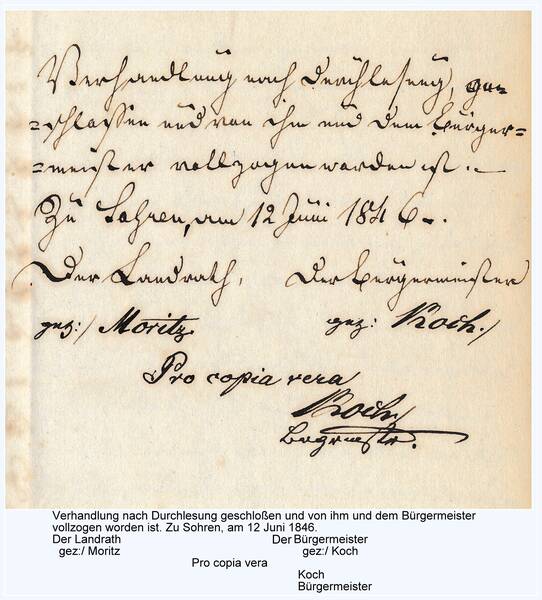 Verhandlung nach Durchlesung, ge=
=schlossen und von ihm und dem Bürger=
=meister vollzogen worden ist.–
Zu Sohren, am 12 Juni 1846–.
Der Landrath, Der Bürgermeister
gez:/ Moritz gez: Koch./
Pro copia vera
Koch/
Bugrmstr.
Verhandlung nach Durchlesung geschloßen und von ihm und dem Bürgermeister
vollzogen worden ist. Zu Sohren, am 12 Juni 1846.
Der Landrath Der Bürgermeister
gez:/ Moritz gez:/ Koch
Pro copia vera
Koch
Bürgermeister